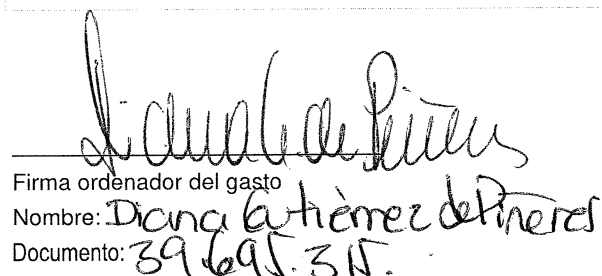 Diana G de Piñeres
Firma ordenador del gasto
Nombre: Diana Gutiérrez de Piñeres
Documento: 39.695.315.